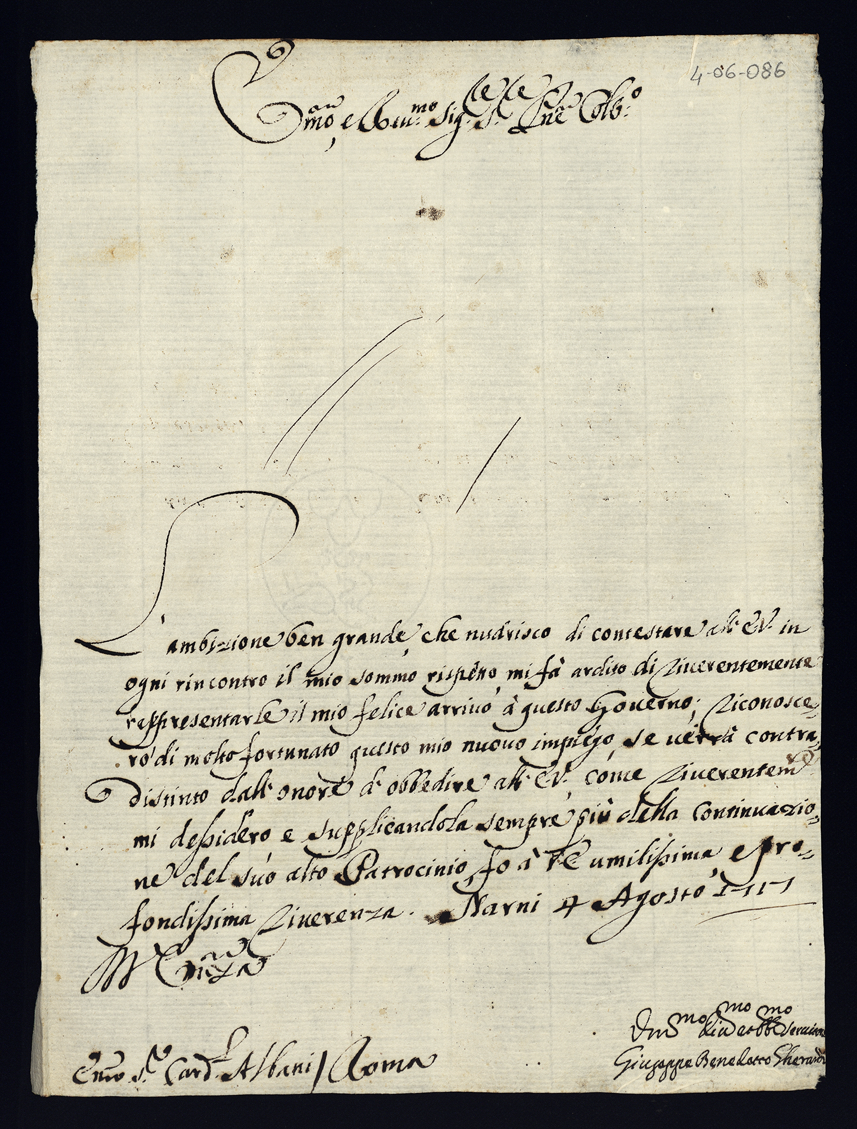 4-06-086
Em.mo e Rev.mo Sig.re S.re P.ne Col.mo
L'ambizione ben grande, che nudrisco di contestare all' E.V. in
ogni rincontro il mio sommo rispetto, mi fà ardito di riverentemente
rappresentarle il mio felice arrivo à questo Governo; Riconosce-
rò di molto fortunato questo mio nuovo impiego, se verrà contra-
distinto dall' onore d' obbedire all' E.V., come riverentem.te
mi dessidero e supplicandola sempre più della continuazio-
ne del suo alto Patrocinio, fo à V.E. umilissima e pro-
fondissima riverenza. Narni 4 Agosto
Em.o S.r Card.l Albani / Roma
Um.mo Div.mo et Obb.mo Servitore
Giuseppe Benedetto